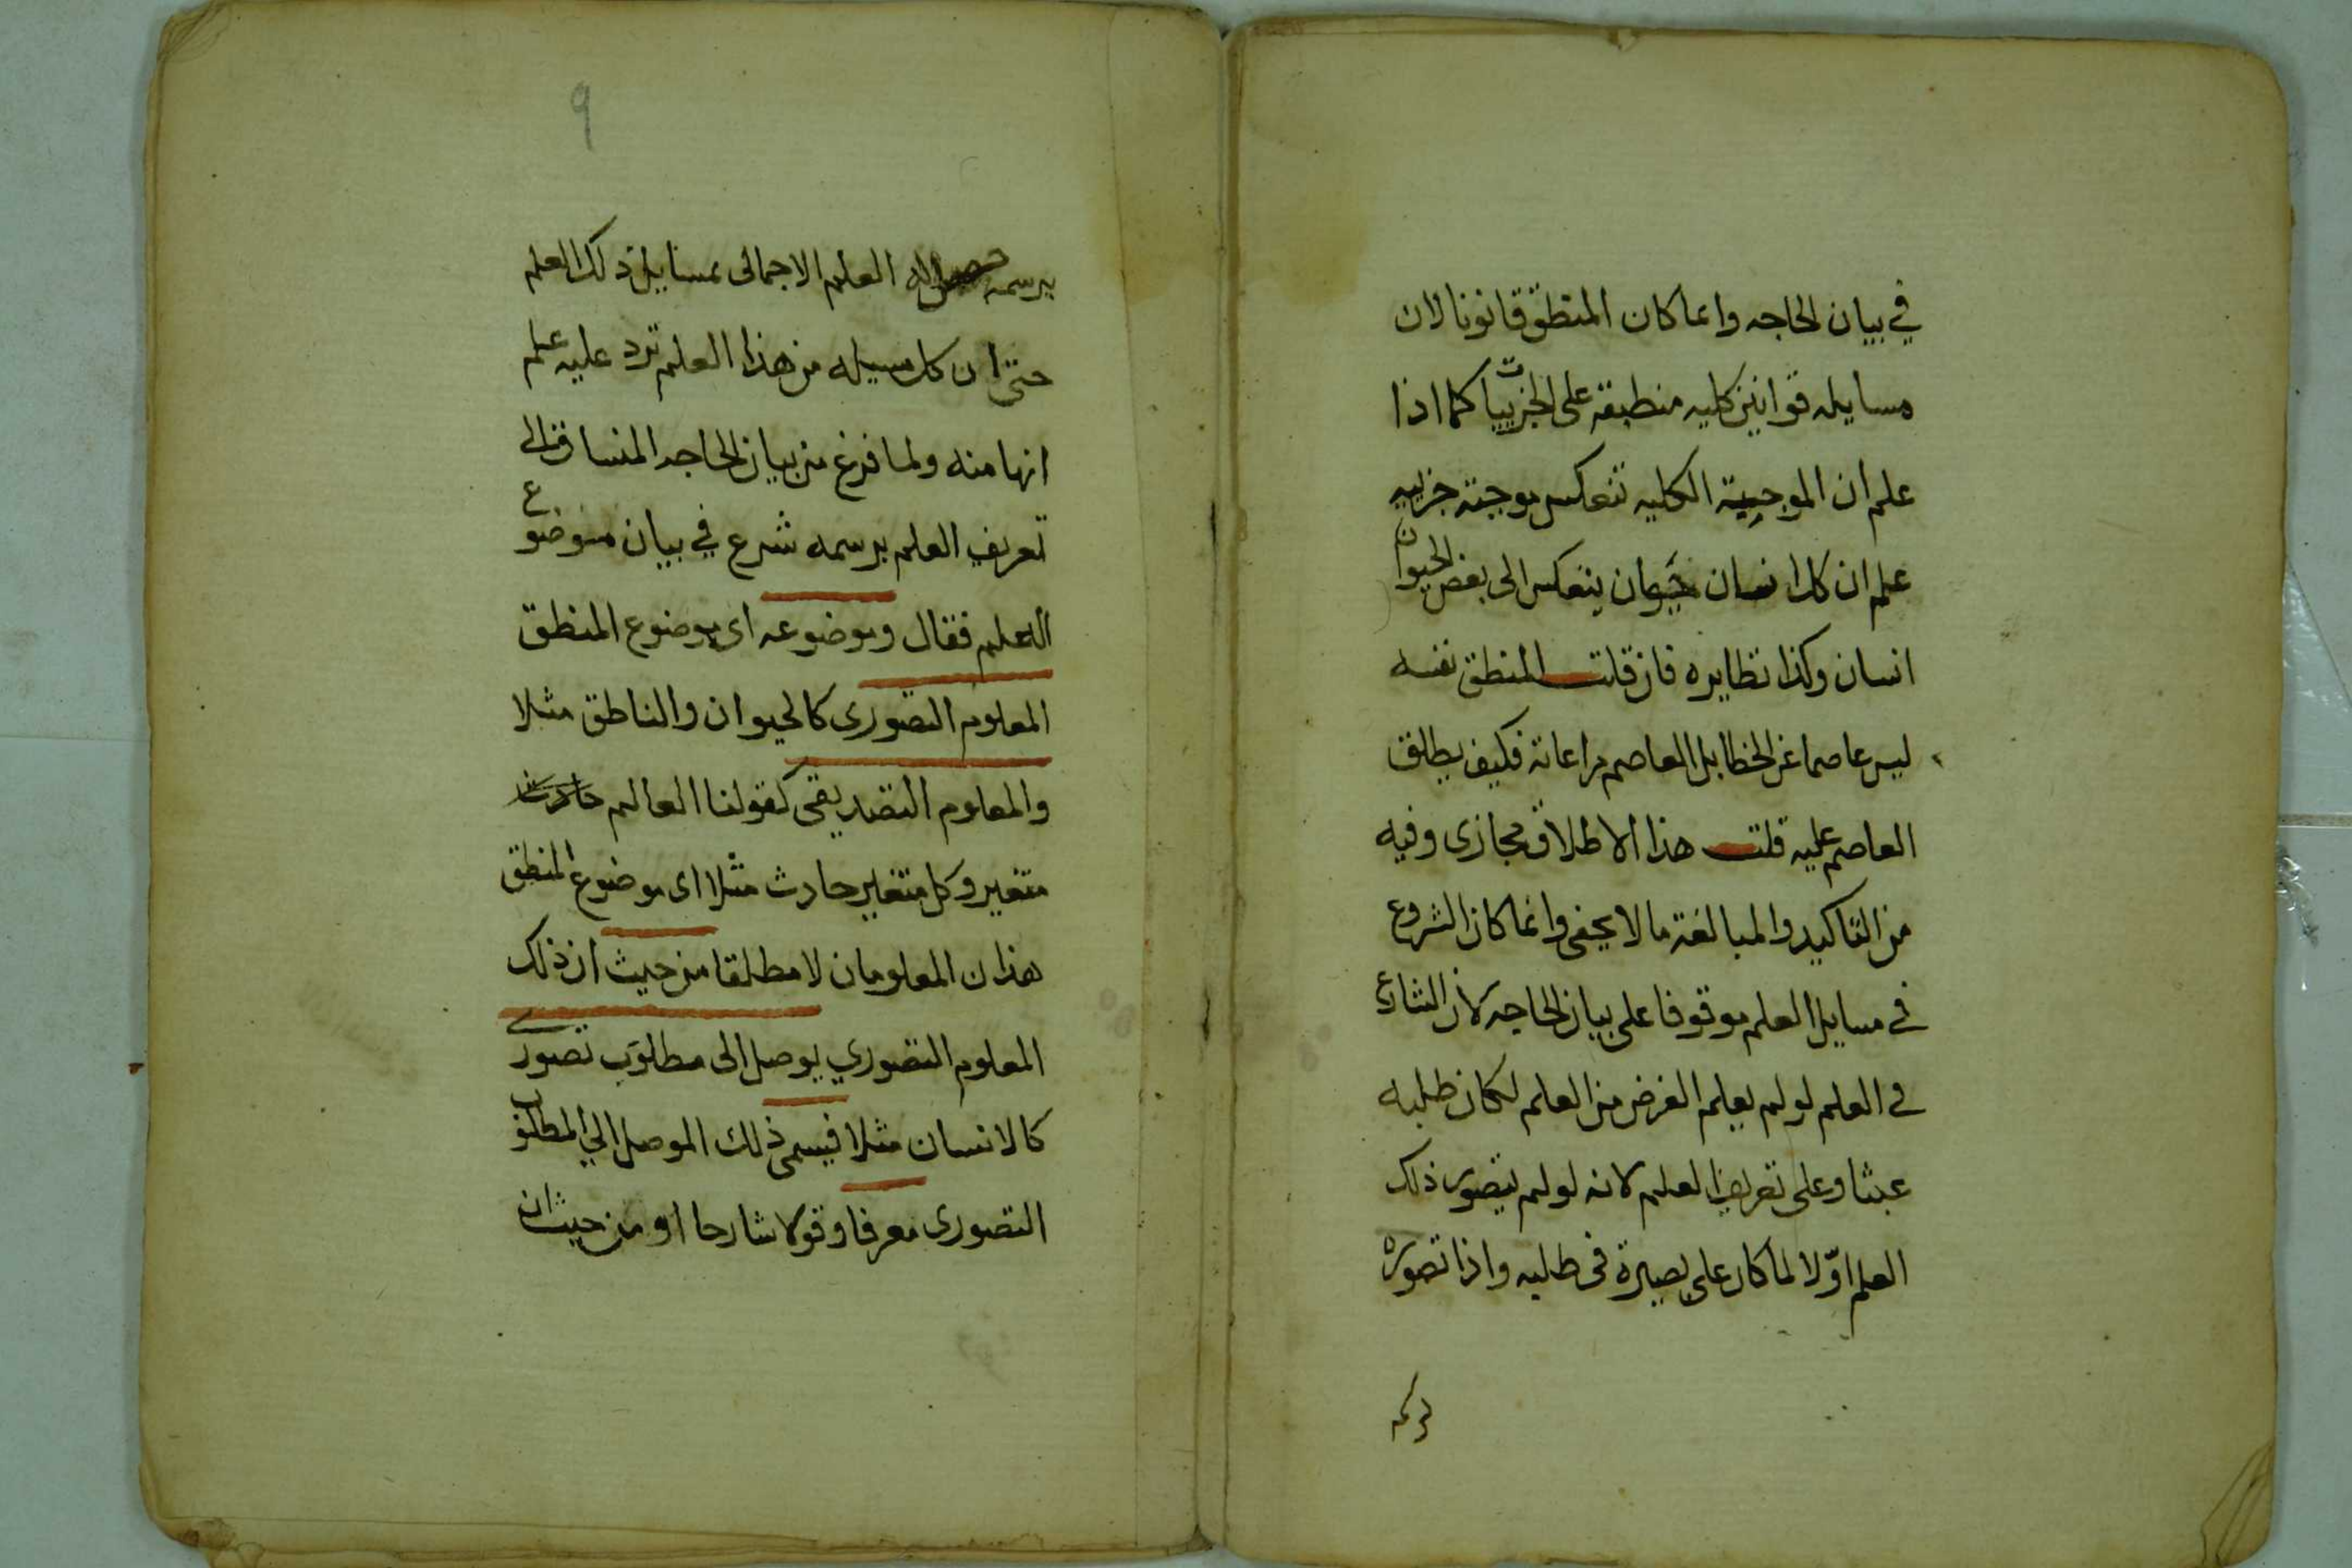 في بيان الحاجه وانما كان المنطق قانونا لان
مسايله قوانين كليه منطبقة على الجزييات كما اذا
علم ان الموجبة الكليه تنعكس موجبة جزييه
علم ان كل انسان حيوان ينعكس الى بعض الحيوان
انسان وكذا نظايره فان قلت المنطق نفسه
ليس عاصما عن الخطا بل العاصم مراعاته فكيف يطلق
العاصم عليه قلت هذا الاطلاق مجازى وفيه
من التاكيد والمبالغة ما لا يخفى وانما كان الشروع
في مسايل العلم موقوفا على بيان الحاجه لان الشارع
في العلم لو لم يعلم الغرض من العلم لكان طلبه
عبثا وعلى تعريف العلم لانه لو لم يتصور ذلك
العلم اوّلا لما كان على بصيرة فى طلبه واذا تصوره
برسمه
٩
برسمه حصل له العلم الاجمالى بمسايل ذلك العلم
حتى ان كل مسيله من هذا العلم ترد عليه علم
انها منه ولما فرغ من بيان الحاجه المنساق الى
تعريف العلم برسمه شرع في بيان موضوع
العلم فقال وموضوعه اى موضوع المنطق
المعلوم التصورى كالحيوان والناطق مثلا
والمعلوم التصديقى كقولنا العالم حادث
متغير وكل متغير حادث مثلا اى موضوع المنطق
هذان المعلومان لا مطلقا من حيث ان ذلك
المعلوم التصوري يوصل الى مطلوب تصورى
كالانسان مثلا فيسمى ذلك الموصل الي المطلوب
التصورى معرفا وقولا شارحا او من حيث ان